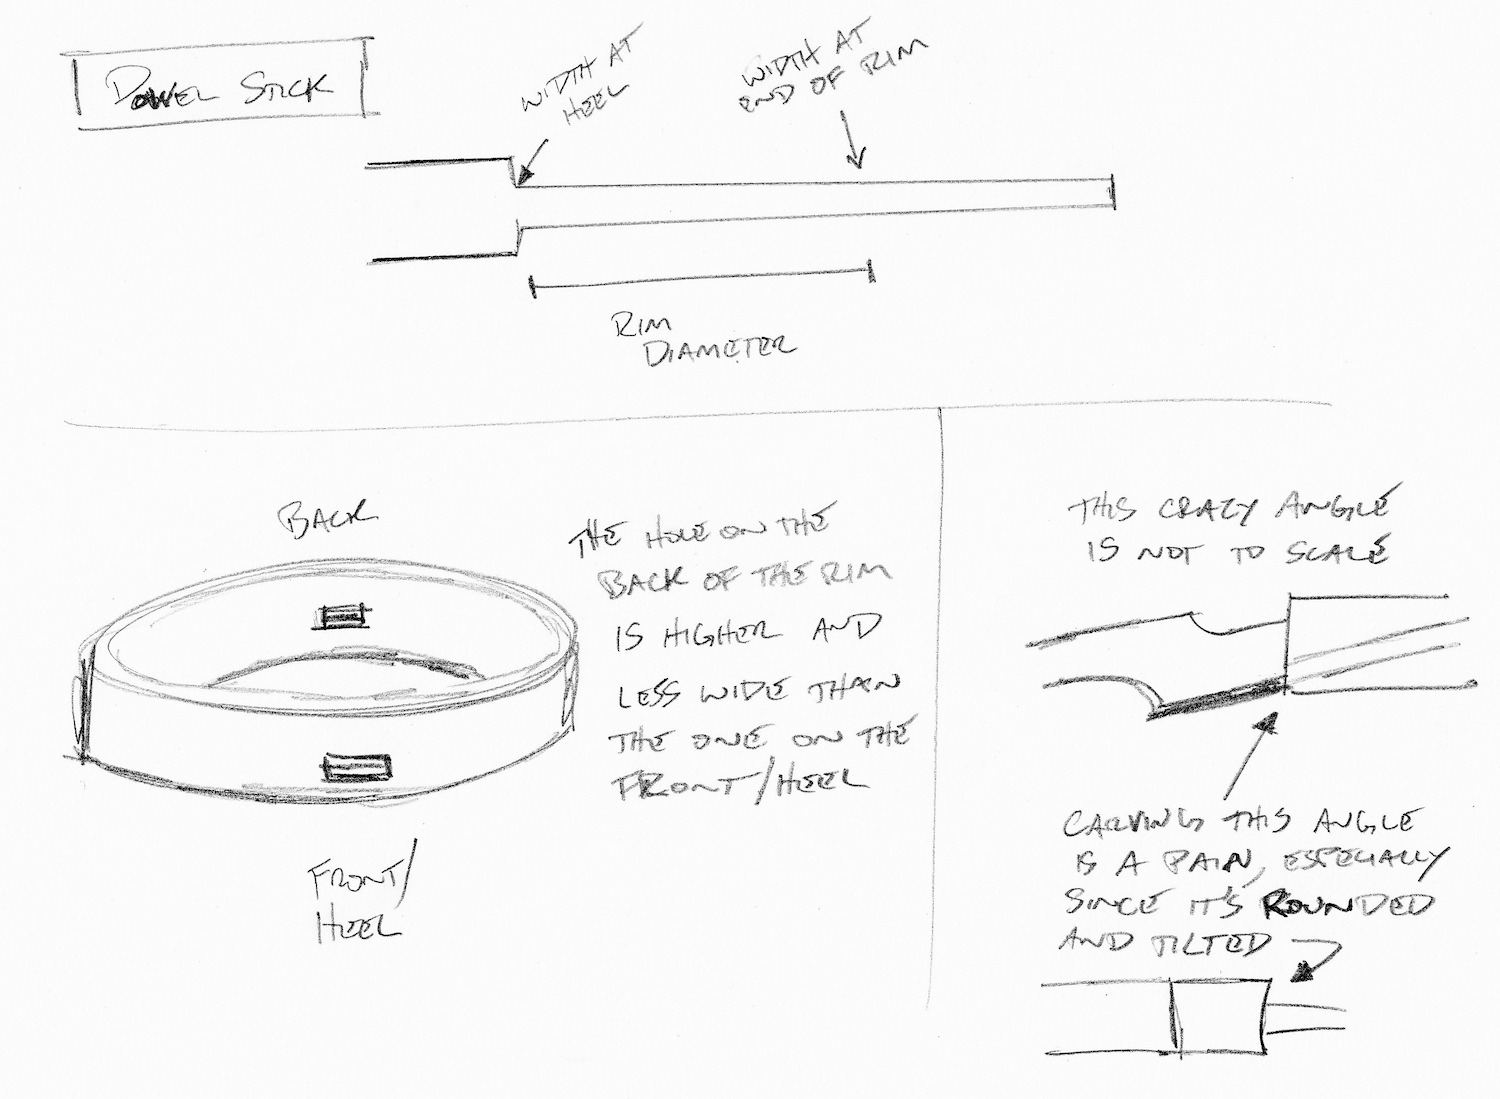 DOWEL STICK
WIDTH AT
HEEL
WIDTH AT
END OF RIM
RIM
DIAMETER
BACK
THE HOLE ON THE
BACK OF THE RIM
IS HIGHER AND
LESS WIDE THAN
THE ONE ON THE
FRONT/HEEL
FRONT/
HEEL
THIS CRAZY ANGLE
IS NOT TO SCALE
CARVING THIS ANGLE
IS A PAIN, ESPECIALLY
SINCE IT'S ROUNDED
AND TILTED